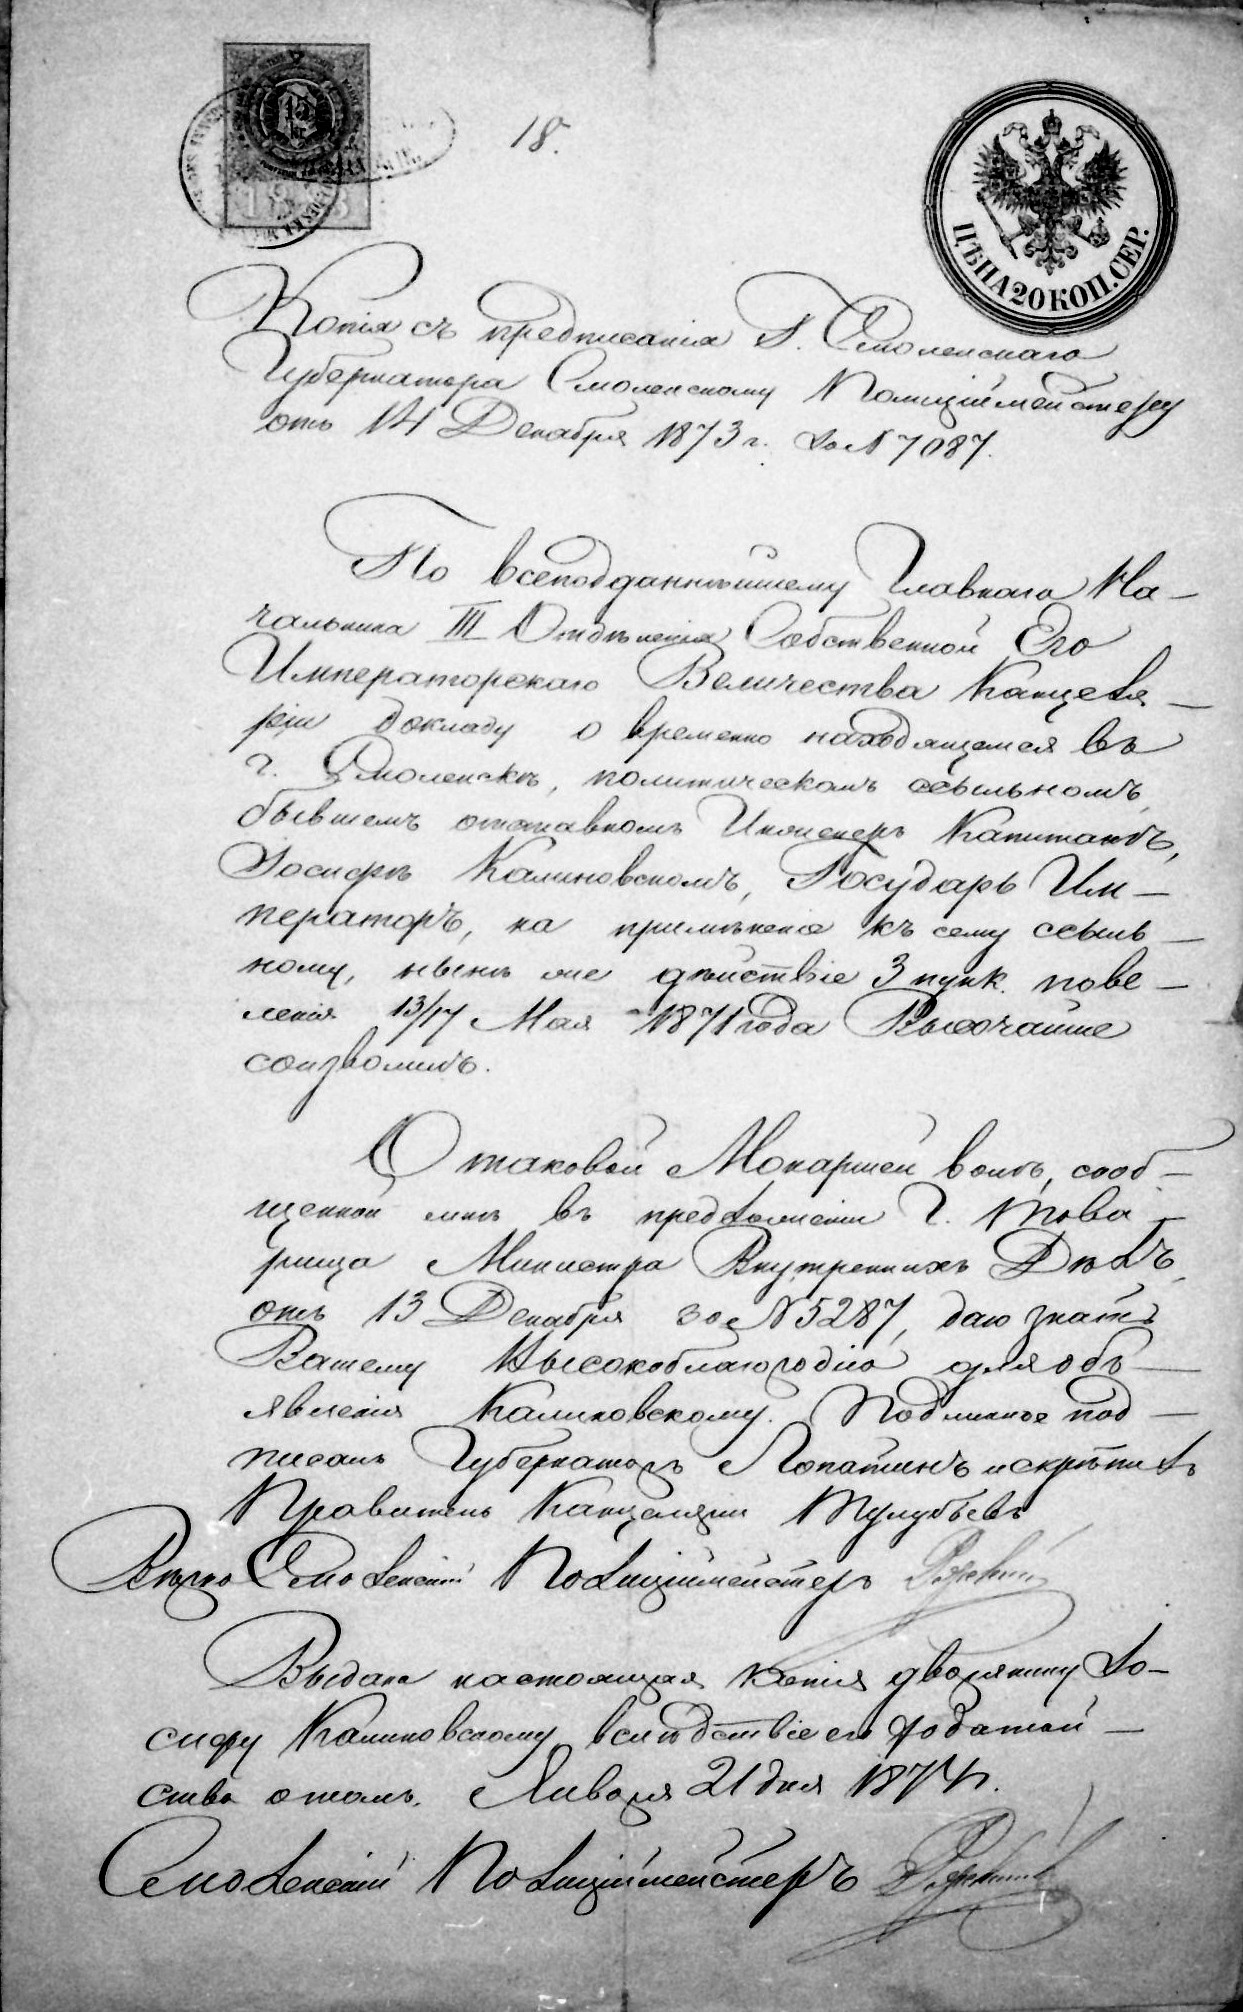 18.
ЦѢНА 20 КОП. СЕР.
Копія съ предписанія Г. Смоленскаго
Губернатора Смоленскому Полиціймейстеру
отъ 14 Декабря 1873 г. за № 7087.
По всеподданнѣйшему Главнаго На-
чальника III Отдѣленія Собственной Его
Императорскаго Величества Канцеля-
ріи докладу о временно находящемся въ
г. Смоленскѣ, политическомъ ссыльномъ,
бывшемъ отставномъ Инженеръ Капитанѣ,
Іосифѣ Калиновскомъ, Государь Им-
ператоръ, на примѣненіе къ сему ссыль-
ному, нынѣ же дѣйствіе 3 пунк. пове-
ленія 13/17 Мая 1871 года Высочайше
соизволилъ.
О таковой Монаршей волѣ, сооб-
щенной мнѣ въ предложеніи Г. Това-
рища Министра Внутреннихъ Дѣлъ,
отъ 13 Декабря за № 5287, даю знать
Вашему Высокоблагородію для объ-
явленія Калиновскому. Подлинное под-
писалъ Губернаторъ Лопатинъ искрѣпилъ
Правитель Канцеляріи Тулубьевъ
Вѣрно Смоленскій Полиціймейстеръ
Выдана настоящая копія дворянину Іо-
сифу Калиновскому вслѣдствіе его ходатай-
ства о томъ. Января 21 дня 1874 г.
Смоленскій Полиціймейстеръ